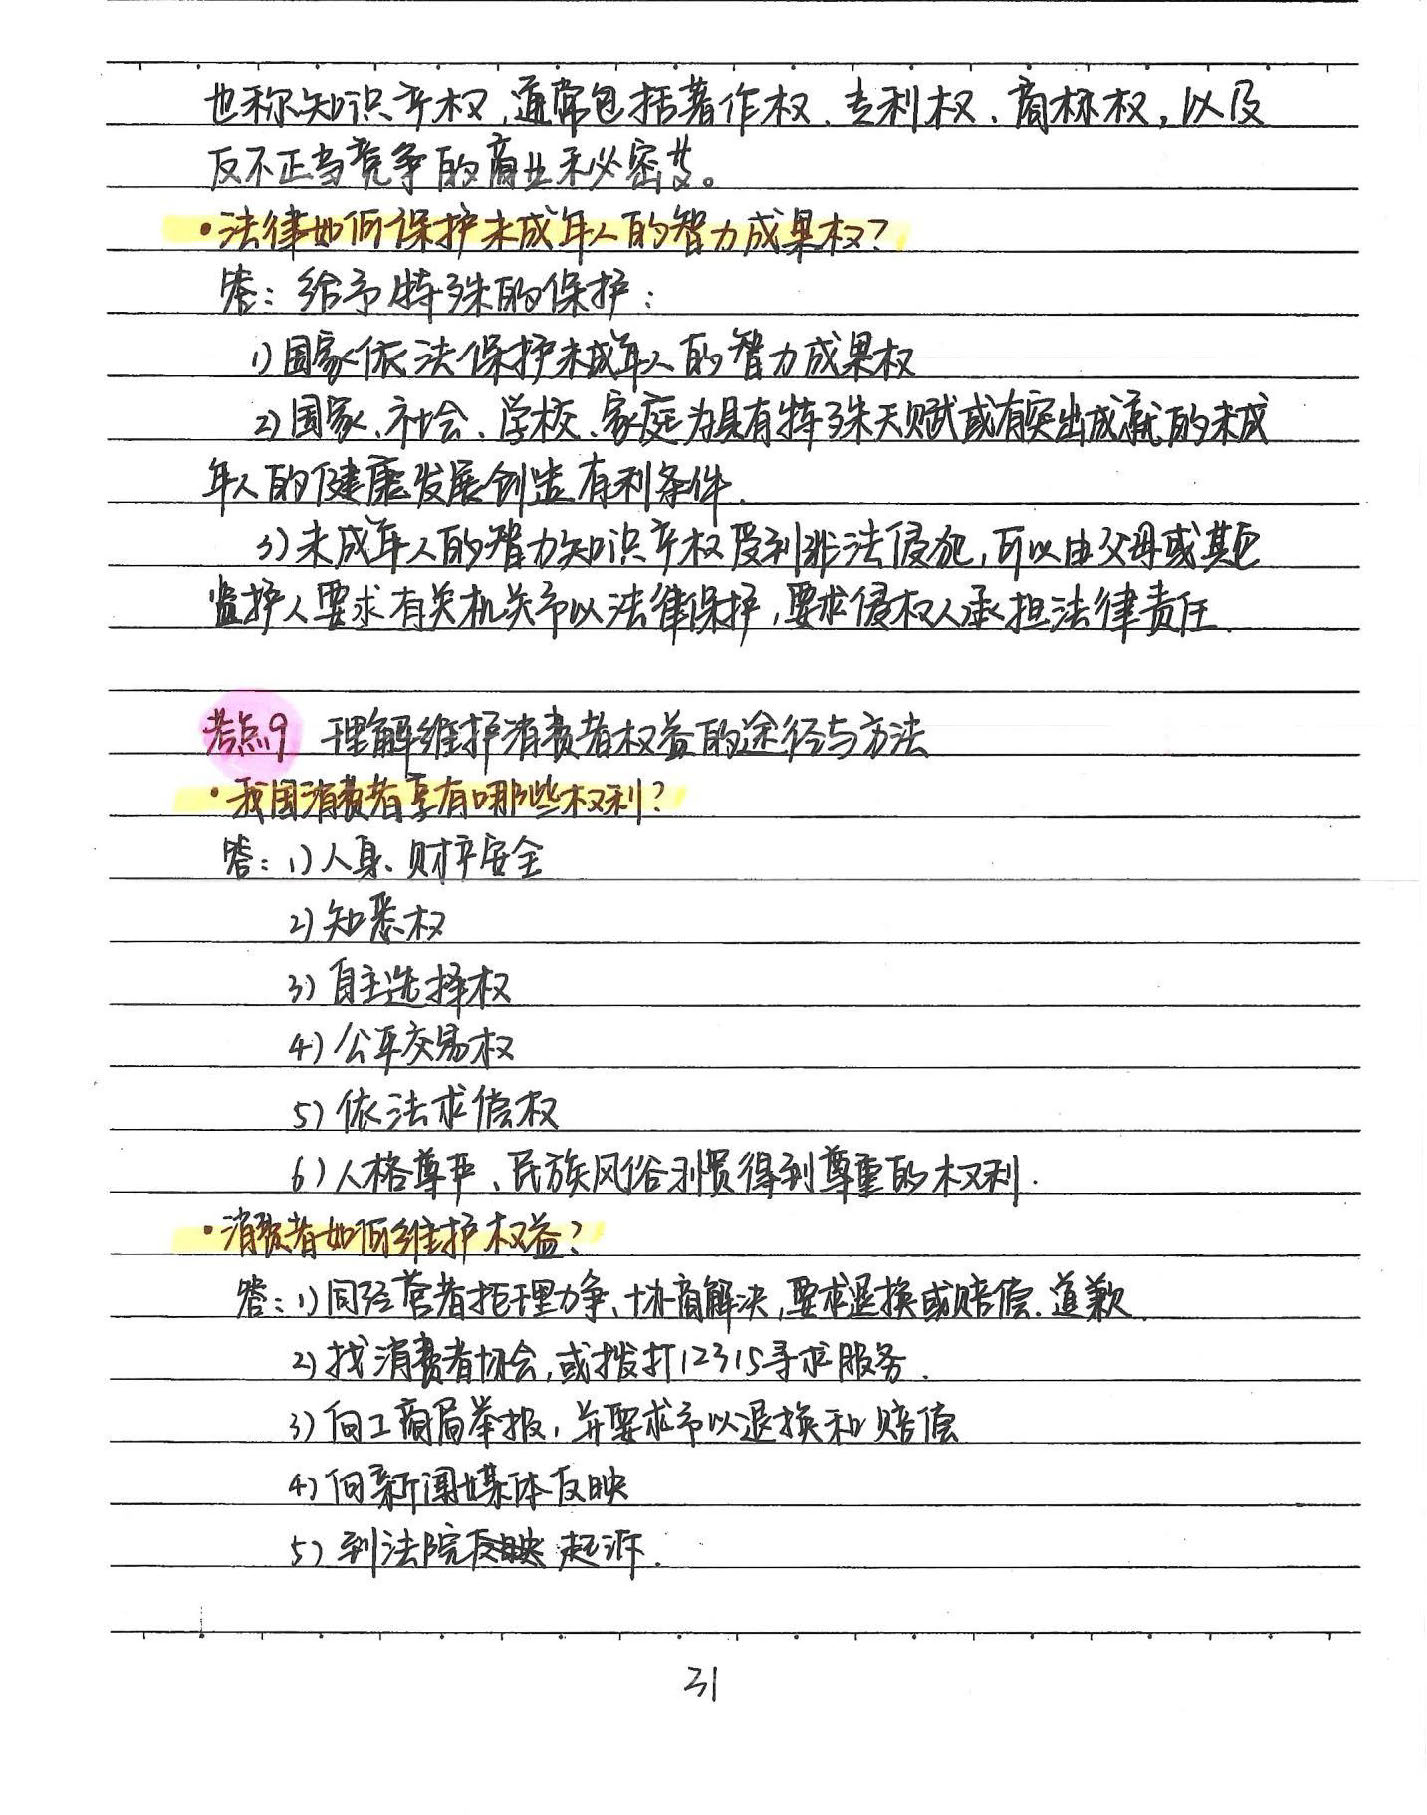 也称知识产权,通常包括著作权、专利权、商标权,以及
反不正当竞争的商业秘密等。
·法律如何保护未成年人的智力成果权?
答:给予特殊的保护:
1)国家依法保护未成年人的智力成果权
2)国家、社会、学校、家庭为具有特殊天赋或有突出成就的未成
年人的健康发展创造有利条件.
3)未成年人的智力知识产权受到非法侵犯,可以由父母或其它
监护人要求有关机关予以法律保护,要求侵权人承担法律责任.
考点9 理解维护消费者权益的途径与方法
·我国消费者享有哪些权利?
答:1)人身、财产安全
2)知悉权
3)自主选择权
4)公平交易权
5)依法求偿权
6)人格尊严、民族风俗习惯得到尊重的权利.
·消费者如何维护权益?
答:1)同经营者据理力争、协商解决,要求退换或赔偿.道歉.
2)找消费者协会,或拨打12315寻求服务.
3)向工商局举报,并要求予以退换和赔偿
4)向新闻媒体反映
5)到法院起诉.
31